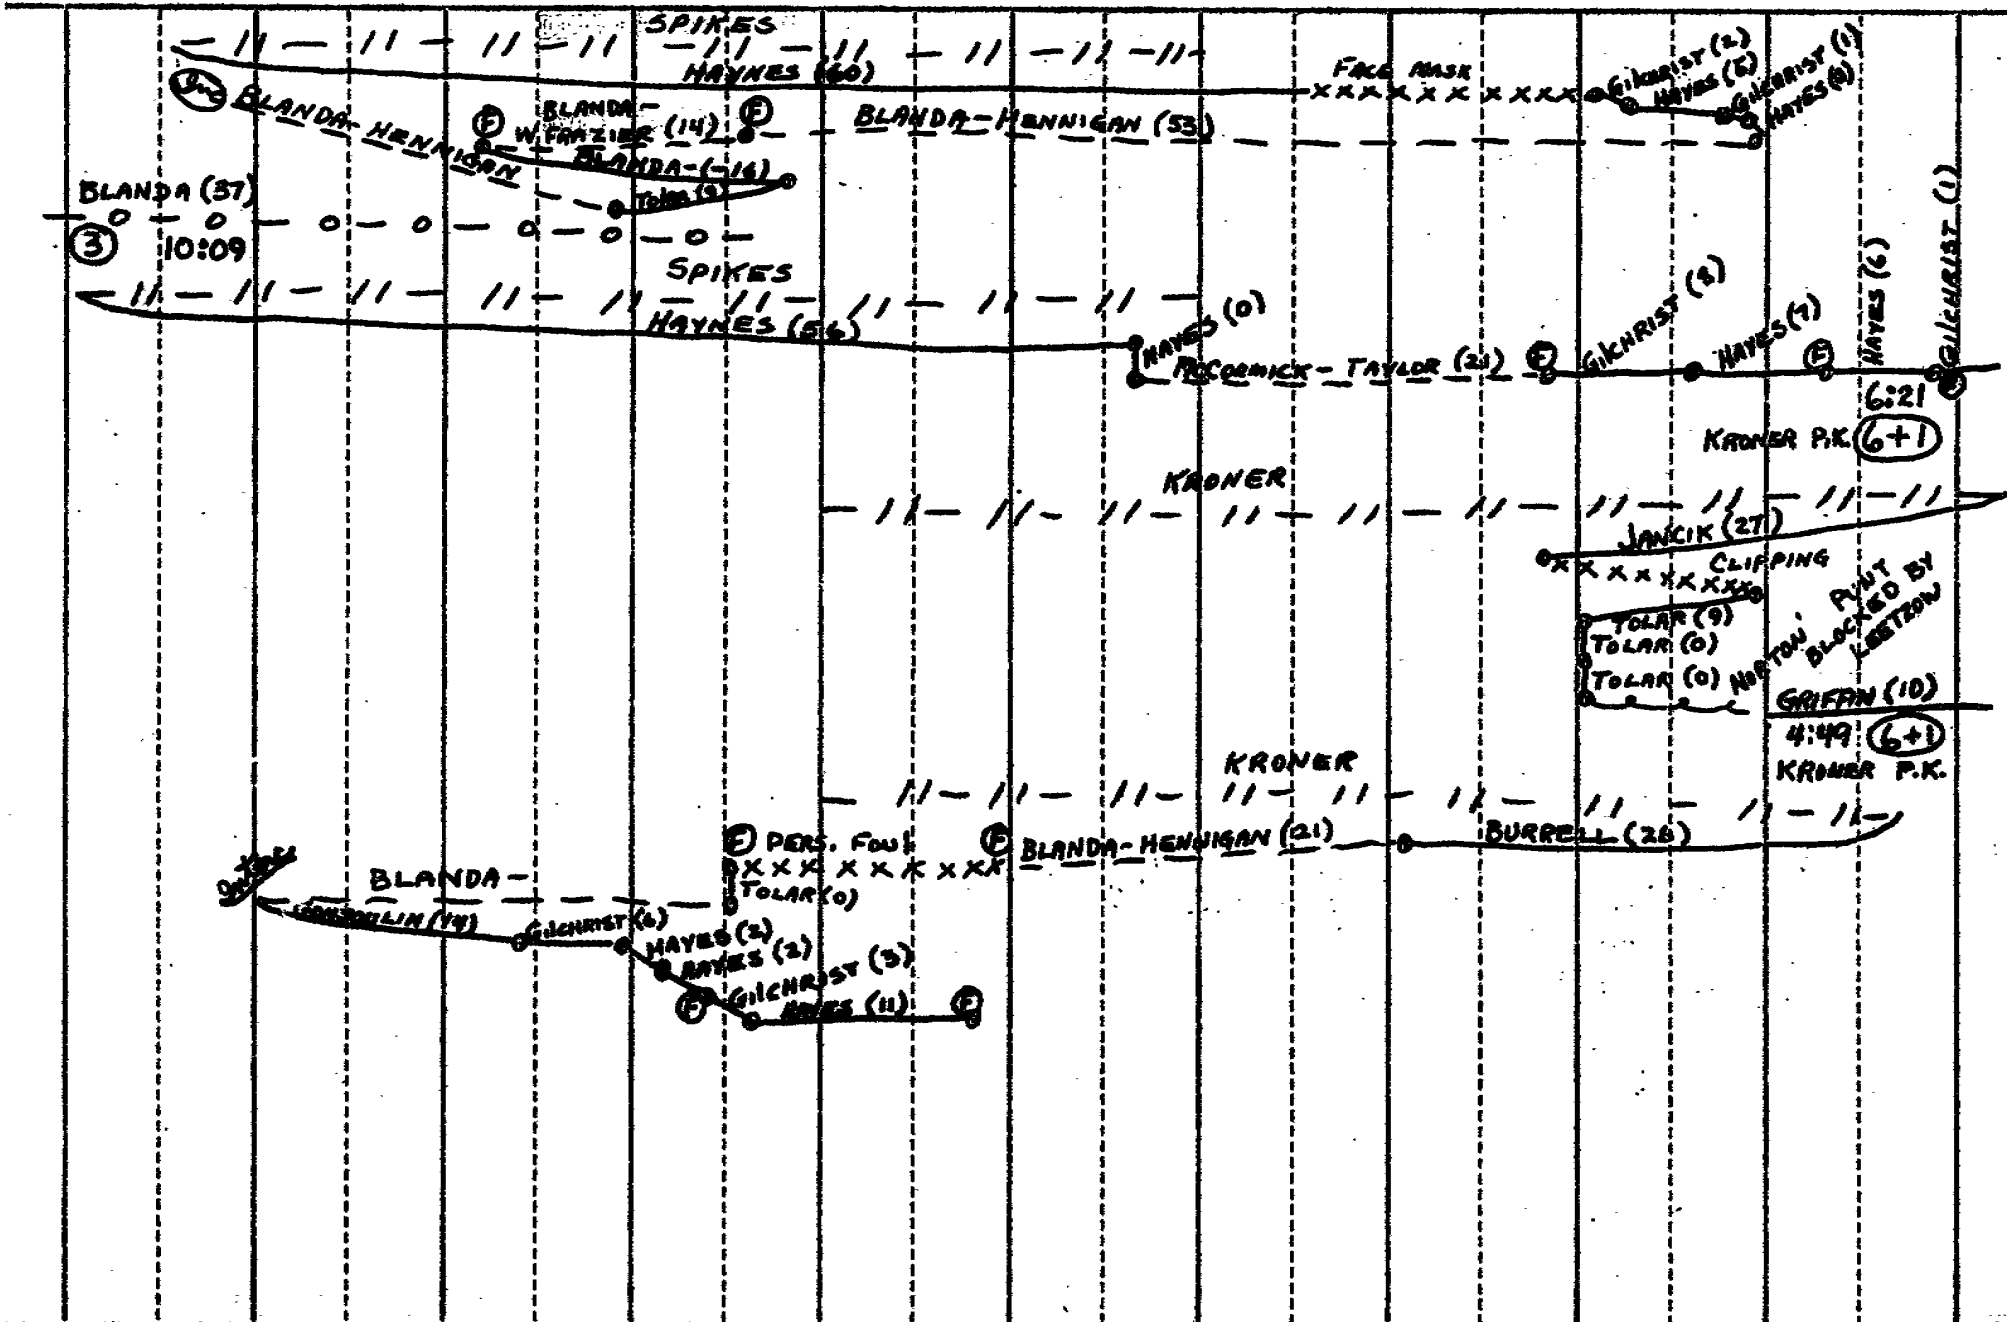 SPIKES
HAYNES (60)
FACE MASK
GilcHRiST (2)
HAYES (5)
GilcHRiST (1)
HAYES (0)
BLANDA-HENNIGAN
F
BLANDA-
W. FRAZIER (14)
F
BLANDA-HENNIGAN (53)
BLANDA-(-16)
TOLAR (9)
BLANDA (37)
3 10:09
SPIKES
HAYNES (56)
HAYES (0)
McCORMICK- TAYLOR (21)
F
GilCHRIST (8)
HAYES (7)
F
HAYES (6)
GilCHRIST (1)
6:21
KRONER P.K. 6+1
KRONER
JANCIK (27)
CLIPPING
TOLAR (9)
TOLAR (0)
TOLAR (0)
NORTON' PUNT
BLOCKED BY
LEETZOW
GRIFFIN (10)
4:49 6+1
KRONER P.K.
KRONER
F PERS. FOUL
F BLANDA-HENNIGAN (21)
BURRELL (26)
TOLAR (0)
BLANDA-
GilCHRIST (6)
HAYES (2)
HAYES (2)
F GilCHRIST (3)
HAYES (11) F